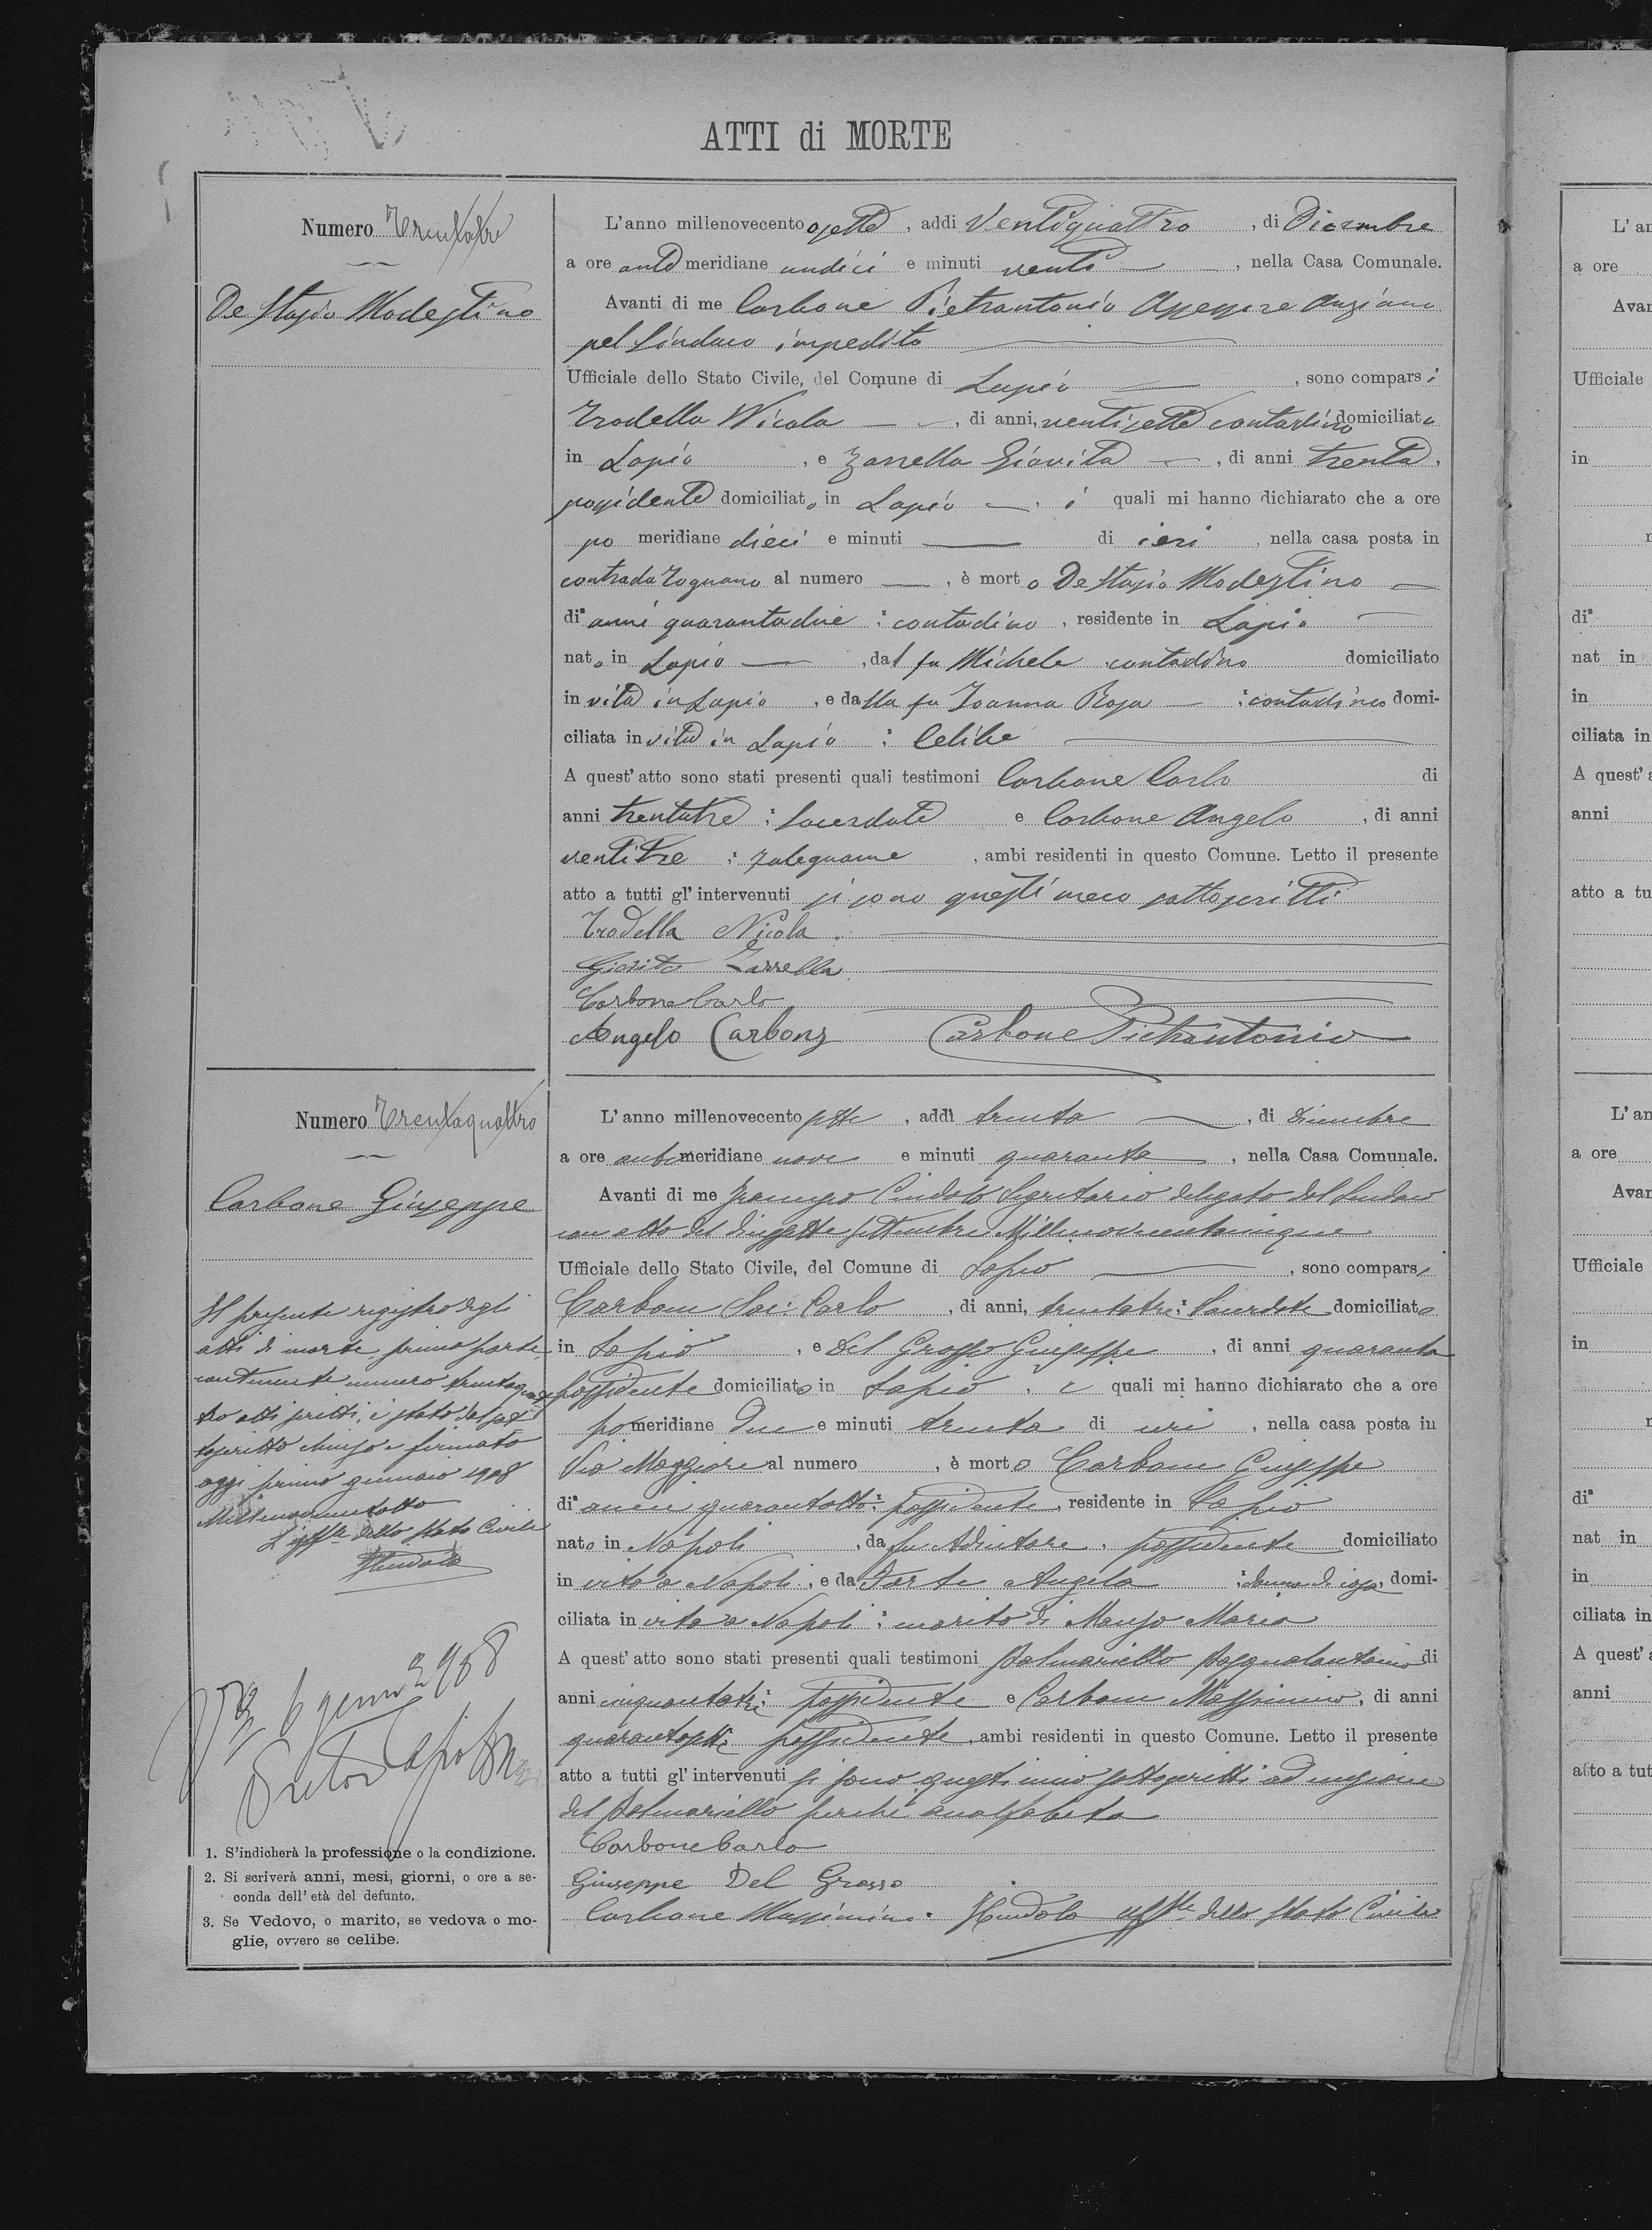 ATTI di MORTE
Numero Trentatre
De Stasio Modestino
L'anno millenovecento sette, addi Ventiquattro, di Dicembre
a ore antemeridiane undici e minuti venti, nella Casa Comunale.
Avanti di me Carbone Pietrantonio Assessore Anziano
pel Sindaco impedito
Ufficiale dello Stato Civile, del Comune di Lapio, sono comparsi
Trodella Nicola, di anni, ventisette contadino domiciliato
in Lapio, e Zarrella Giovita, di anni trenta,
possidente domiciliato in Lapio, i quali mi hanno dichiarato che a ore
pomeridiane dieci e minuti di ieri, nella casa posta in
contrada Tognano al numero, è morto De Stasio Modestino
di² anni quarantadue : contadino, residente in Lapio
nato in Lapio, dal fu Michele contadino domiciliato
in vita in Lapio, e dalla fu Joanna Rosa : contadina domi-
ciliata in vita in Lapio : Celibe
A quest'atto sono stati presenti quali testimoni Carbone Carlo di
anni trentatre : Sacerdote e Carbone Angelo, di anni
ventitre : falegname, ambi residenti in questo Comune. Letto il presente
atto a tutti gl'intervenuti si sono questi meco sottoscritti
Trodella Nicola.
Giovita Zarrella
Carbone Carlo
Angelo Carbone Carbone Pietrantonio
Numero Trentaquattro
Carbone Giuseppe
Il presente registro degli
atti di morte, prima parte,
contenente numero trentaquat
tro atti scritti, è stato dal sot
toscritto chiuso e firmato
oggi primo gennaio 1908
Millenovecentotto
L'uff.le dello Stato Civile
6 genn 1908
1. S'indicherà la professione o la condizione.
2. Si scriverà anni, mesi, giorni, o ore a se-
conda dell'età del defunto.
3. Se Vedovo, o marito, se vedova o mo-
glie, ovvero se celibe.
L'anno millenovecento sette, addì trenta, di Dicembre
a ore antimeridiane nove e minuti quaranta, nella Casa Comunale.
Avanti di me Segretario delegato del Sindaco
con atto del diciassette settembre Millenovecentocinque
Ufficiale dello Stato Civile, del Comune di Lapio, sono comparsi
Carbone Sac: Carlo, di anni, trentatre : Sacerdote domiciliato
in Lapio, e Del Grosso Giuseppe, di anni quaranta
possidente domiciliato in Lapio, i quali mi hanno dichiarato che a ore
pomeridiane due e minuti trenta di ieri, nella casa posta in
Via Maggiore al numero, è morto Carbone Giuseppe
di² anni quarantotto : possidente, residente in Lapio
nato in Napoli, da fu Adiutore, possidente domiciliato
in vita a Napoli, e da Forte Angela : donna di casa, domi-
ciliata in vita a Napoli : marito di Manso Maria
A quest'atto sono stati presenti quali testimoni Palmariello Pasqualantonio di
anni cinquantatre : possidente e Carbone Massimino, di anni
quarantasette possidente, ambi residenti in questo Comune. Letto il presente
atto a tutti gl'intervenuti si sono questi meco sottoscritti ad eccezione
del Palmariello perchè analfabeta
Carbone Carlo
Giuseppe Del Grosso
Carbone Massimino. uff.le dello Stato Civile
L'an
a ore
Avan
Ufficiale
in
di²
nat in
in
ciliata in
A quest'a
anni
atto a tu
L'an
a ore
Avan
Ufficiale
in
di²
nat in
in
ciliata in
A quest'a
anni
atto a tut